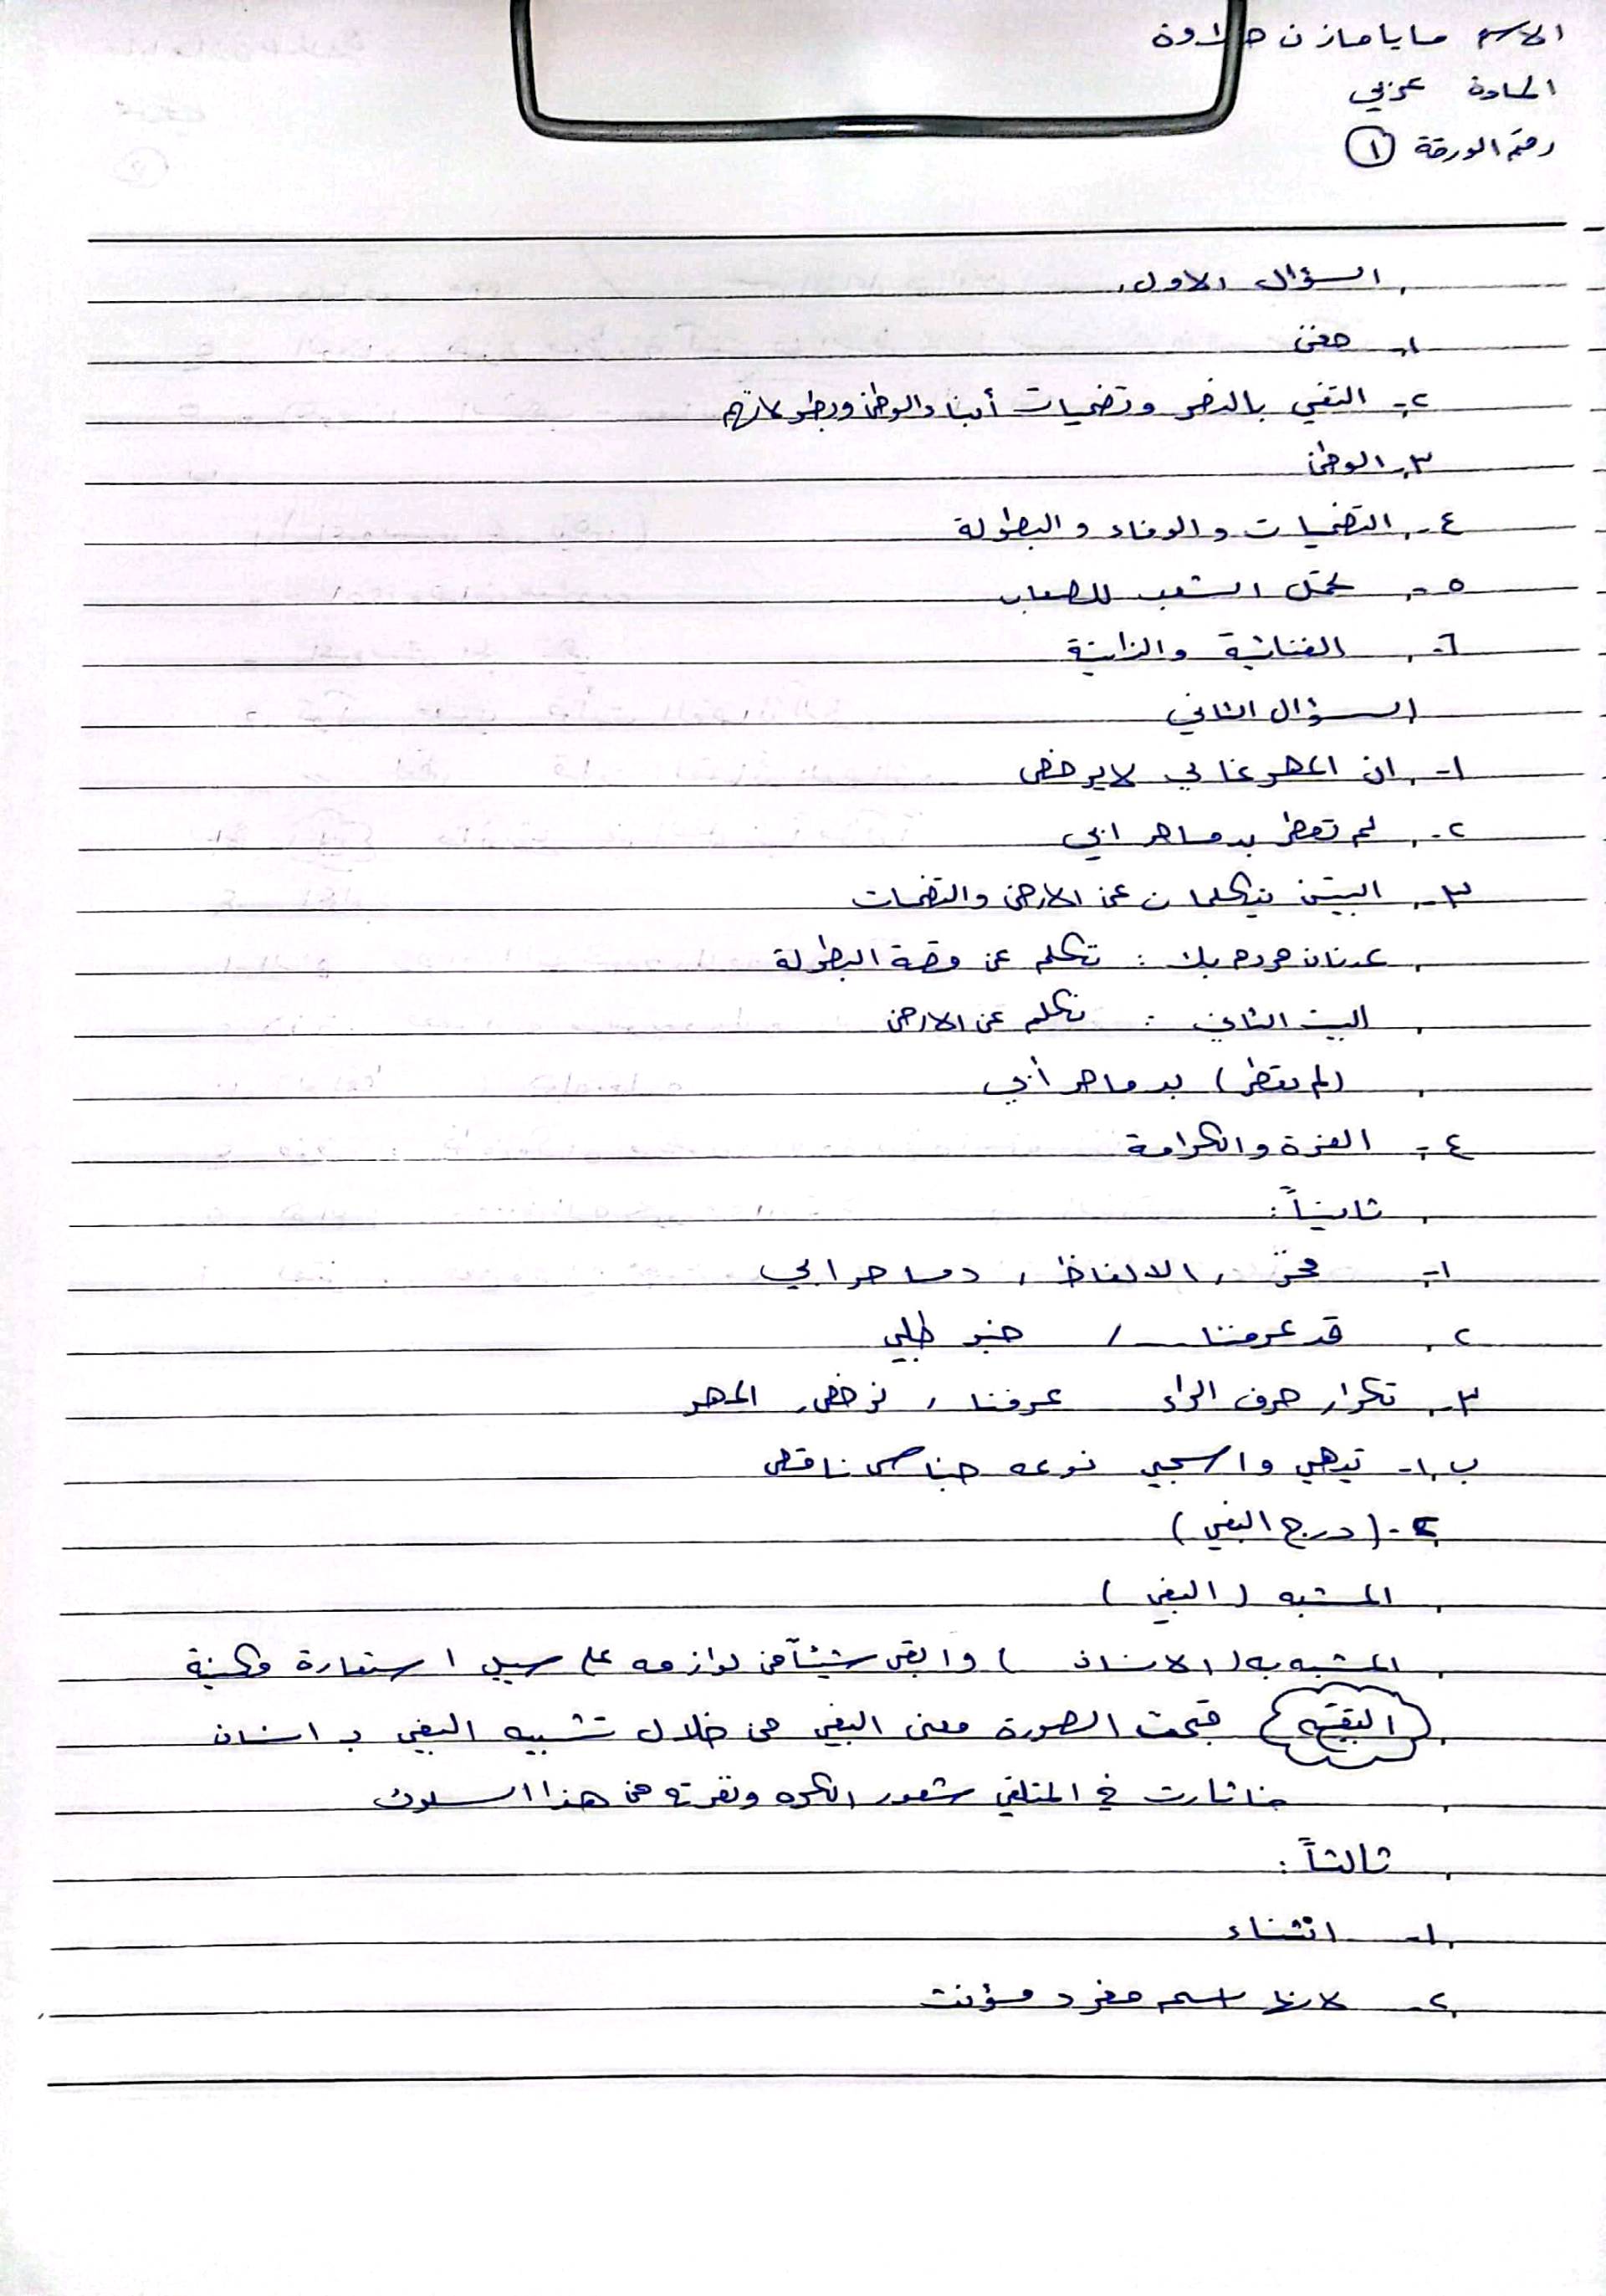 الاسم مايا مازن حلاوة
المادة عربي
رقم الورقة ١
السؤال الاول
١- مغنى
٢- التغني بالنصر وتضحيات أبناء الوطن وبطولاتهم
٣- الوطن
٤- التضحيات والوفاء والبطولة
٥- تحمل الشعب للصعاب
٦- الغنائية والذاتية
السؤال الثاني
١- ان المهر غالي لا يرخص
٢- لم تعطر بدما حر ابي
٣- البيتين يتكلمان عن الارض والتضحات
عدنان مردم بك : تكلم عن قصة البطولة
البيت الثاني : تكلم عن الارض
(لم تعطر) بدما حر أبي
٤- العزة والكرامة
ثانياً :
١- الالفاظ ، دما حر ابي
٢- قد عرفنا / خبر طلبي
٣- تكرار حرف الراء عرفنا ، نرخص، المهر
ب ١- تيهي واسحبي نوعه جناس ناقص
٢- (درج البغي)
المشبه (البغي)
المشبه به (الانسان) وابقى شيئاً من لوازمه على سبيل استعارة مكنية
(التقبيح) قبحت الصورة معنى البغي من خلال تشبيه البغي بـ انسان
فاثارت في المتلقي شعور الكره ونفرته من هذا السلوك
ثالثاً :
١- انشاء
٢- لانها اسم مفرد مؤنث